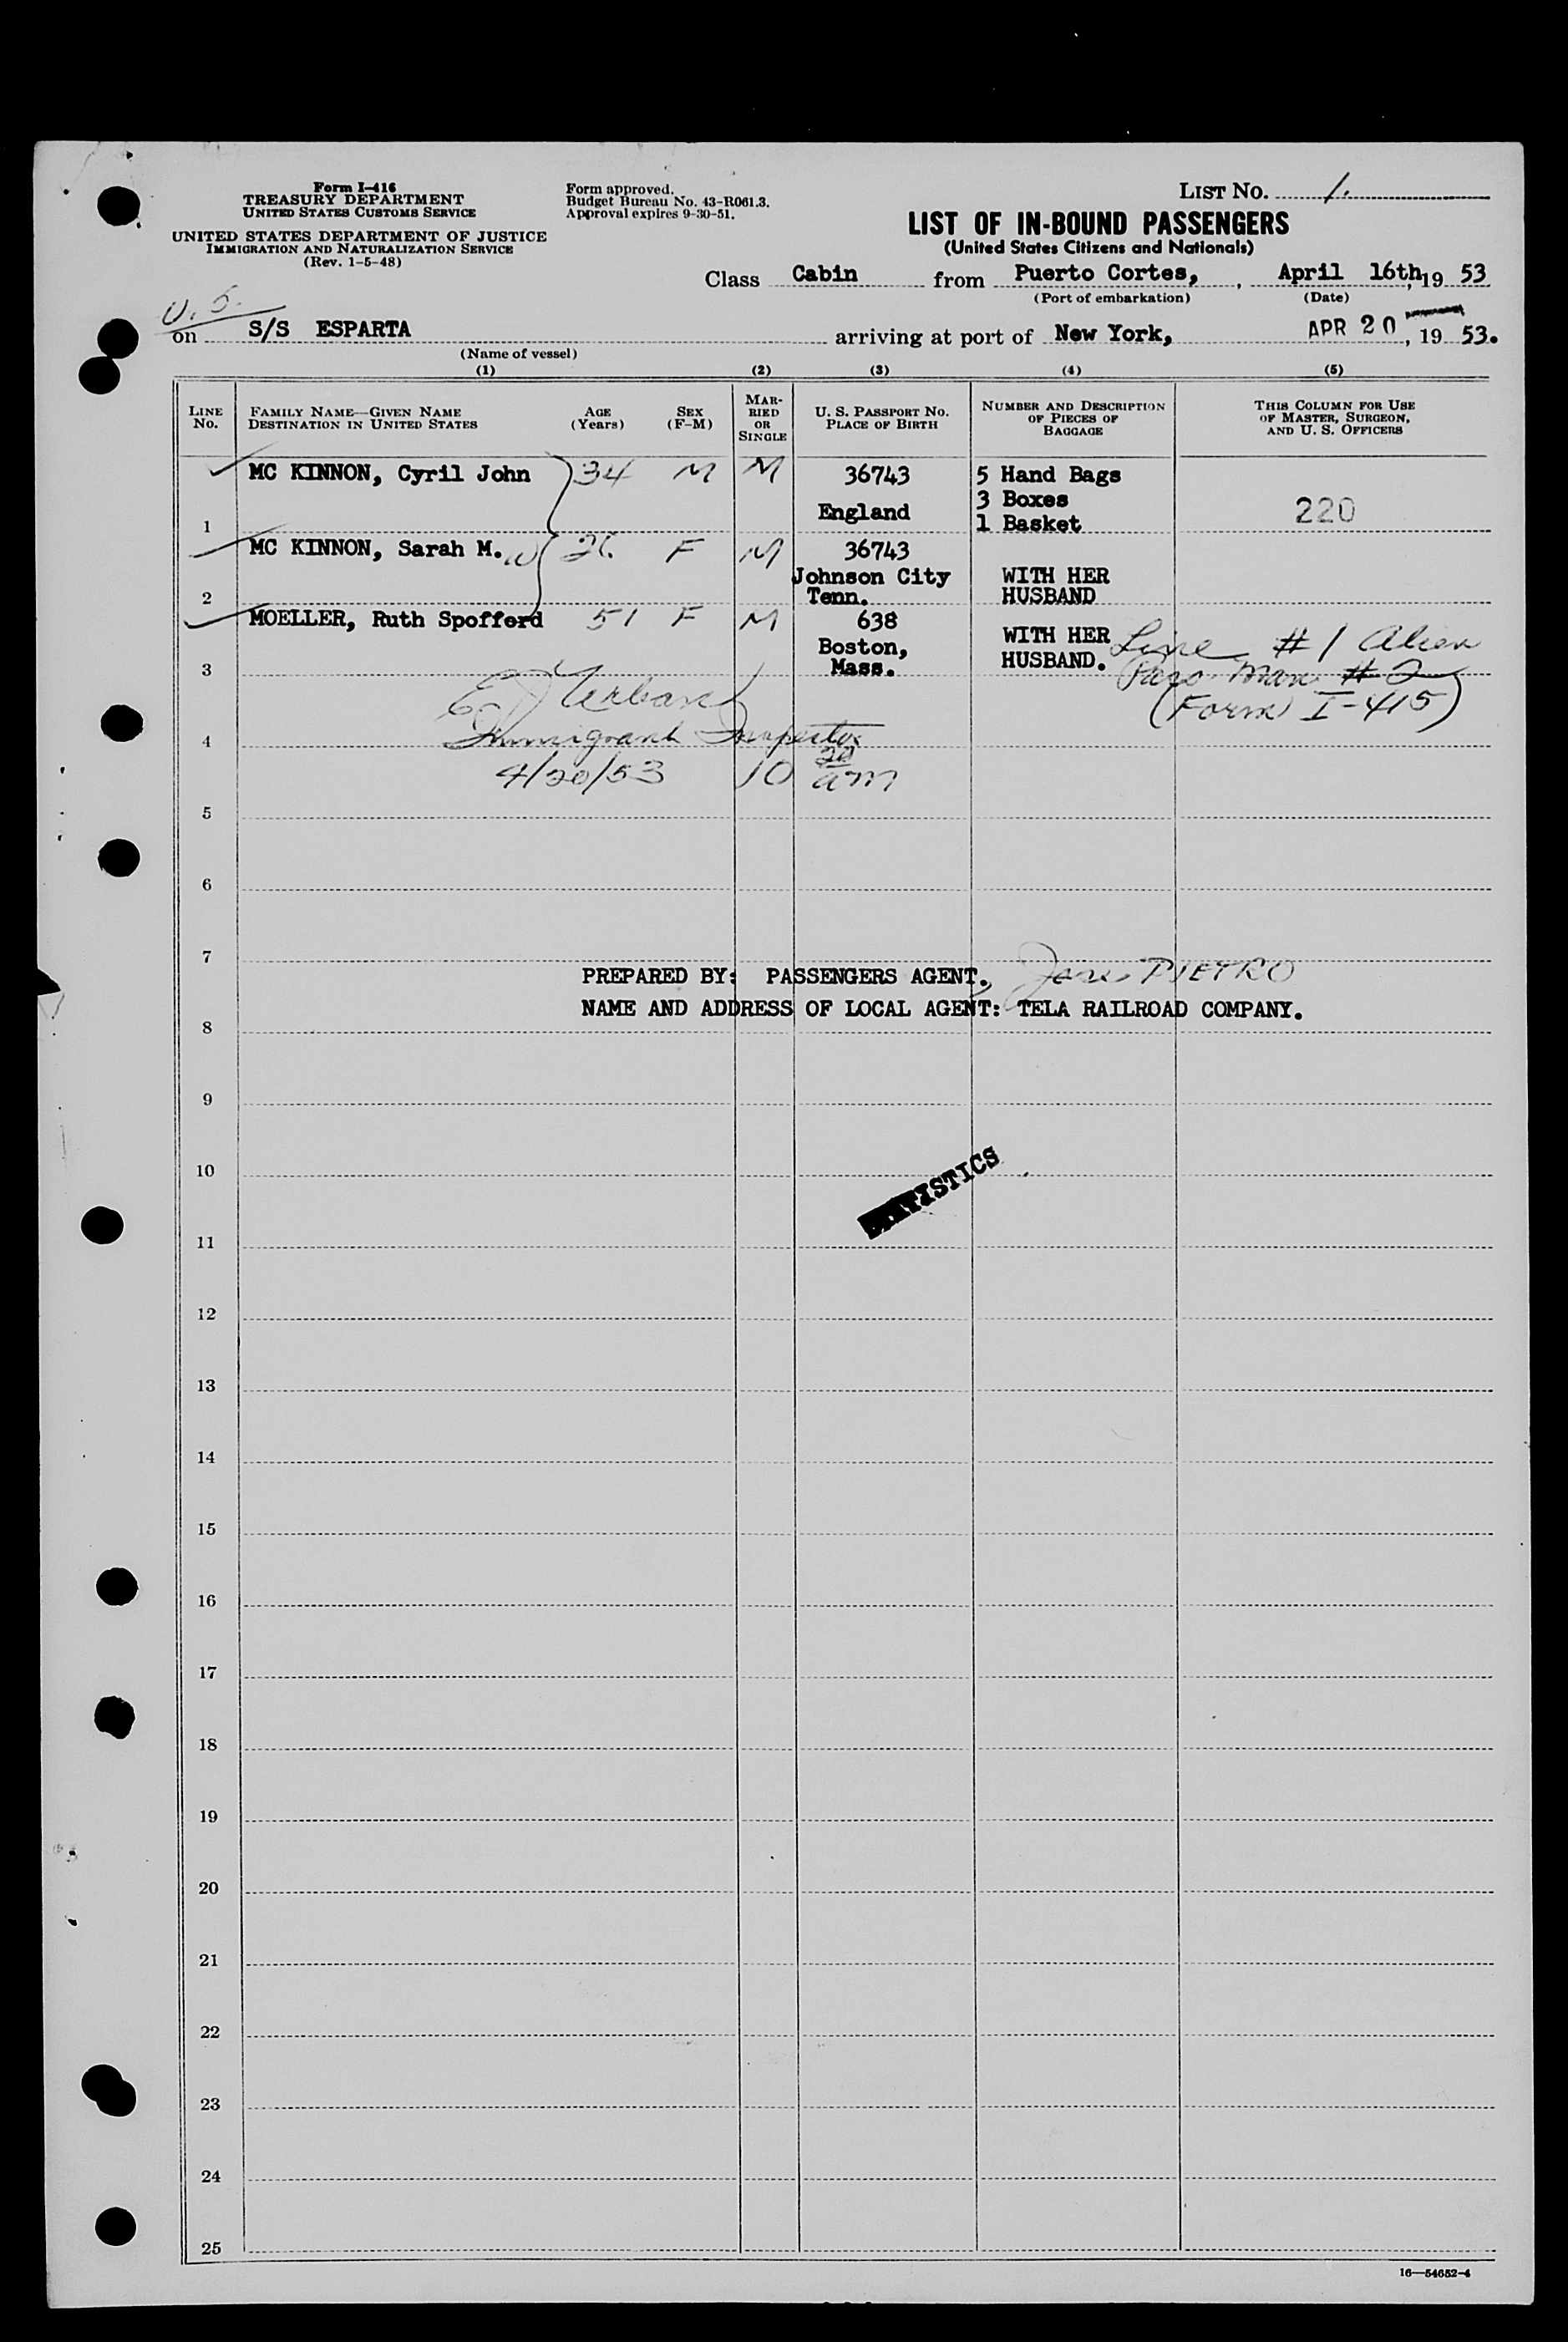 Form I-416
TREASURY DEPARTMENT
UNITED STATES CUSTOMS SERVICE
UNITED STATES DEPARTMENT OF JUSTICE
IMMIGRATION AND NATURALIZATION SERVICE
(Rev. 1-5-48)
Form approved.
Budget Bureau No. 43-R061.3.
Approval expires 9-30-51.
LIST NO. 1.
LIST OF IN-BOUND PASSENGERS
(United States Citizens and Nationals)
Class Cabin from Puerto Cortes, , April 16th, 19 53
(Port of embarkation) (Date)
U.S.
on S/S ESPARTA arriving at port of New York, APR 20, 19 53.
(Name of vessel)
(1) (2) (3) (4) (5)
LINE NO. FAMILY NAME—GIVEN NAME DESTINATION IN UNITED STATES AGE (Years) SEX (F-M) MARRIED OR SINGLE U. S. PASSPORT NO. PLACE OF BIRTH NUMBER AND DESCRIPTION OF PIECES OF BAGGAGE THIS COLUMN FOR USE OF MASTER, SURGEON, AND U. S. OFFICERS
MC KINNON, Cyril John 34 M M 36743 5 Hand Bags
3 Boxes
England 220
1 1 Basket
MC KINNON, Sarah M. W F M 36743
Johnson City WITH HER
2 Tenn. HUSBAND
MOELLER, Ruth Spofford 51 F M 638
Boston, WITH HER Line #1 Alien
3 Mass. HUSBAND. Man #2
(Form I-415)
E J Urban
4 Immigrant Inspector
4/20/53 10 20 am
5
6
7
PREPARED BY: PASSENGERS AGENT. PIETRO
NAME AND ADDRESS OF LOCAL AGENT: TELA RAILROAD COMPANY.
8
9
10
STATISTICS
11
12
13
14
15
16
17
18
19
20
21
22
23
24
25
16—54652-4